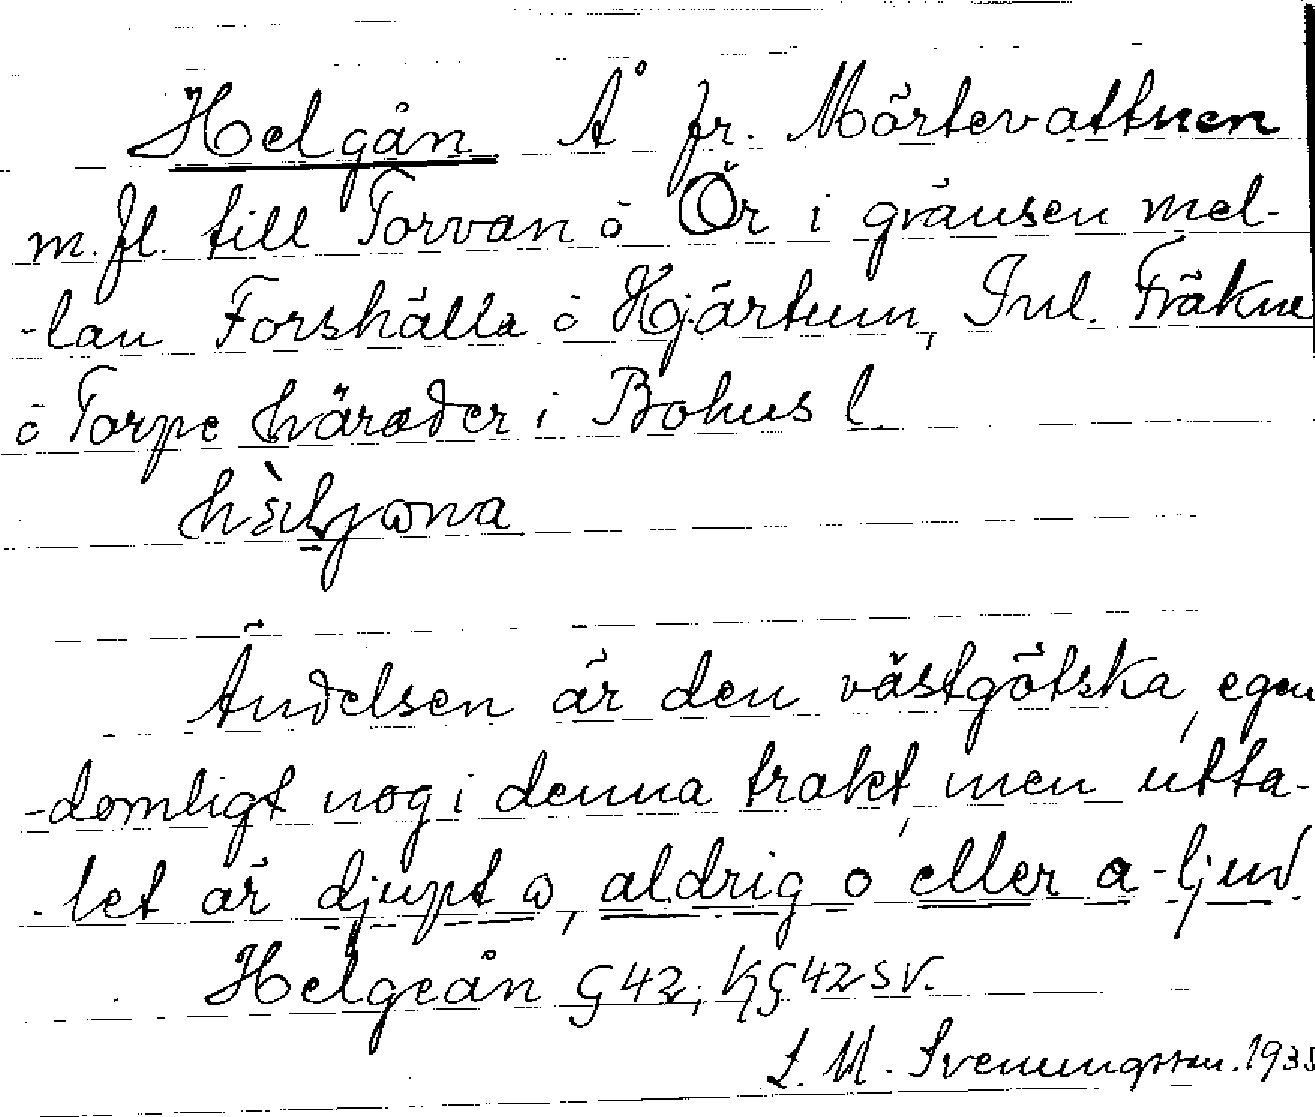 Helgån Å fr. Mörtevattnen
m. fl. till Torvan ö Ör i gränsen mel-
-lan Forshälla ö Hjärtum, Inl. Fräkne
ö Torpe härader i Bohus l.
Ändelsen är den västgötska, egen
-domligt nog i denna trakt, men utta-
-let är djupt ω, aldrig o eller a-ljud.
Helgeån G 42, KG 42 SV.
L. M. Svenungsson. 1935